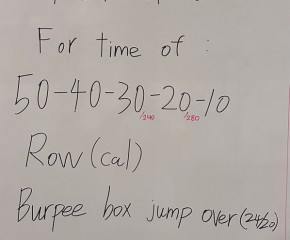 For time of :
50-40-30-20-10
/240 /280
Row (cal)
Burpee box jump over (24/20)